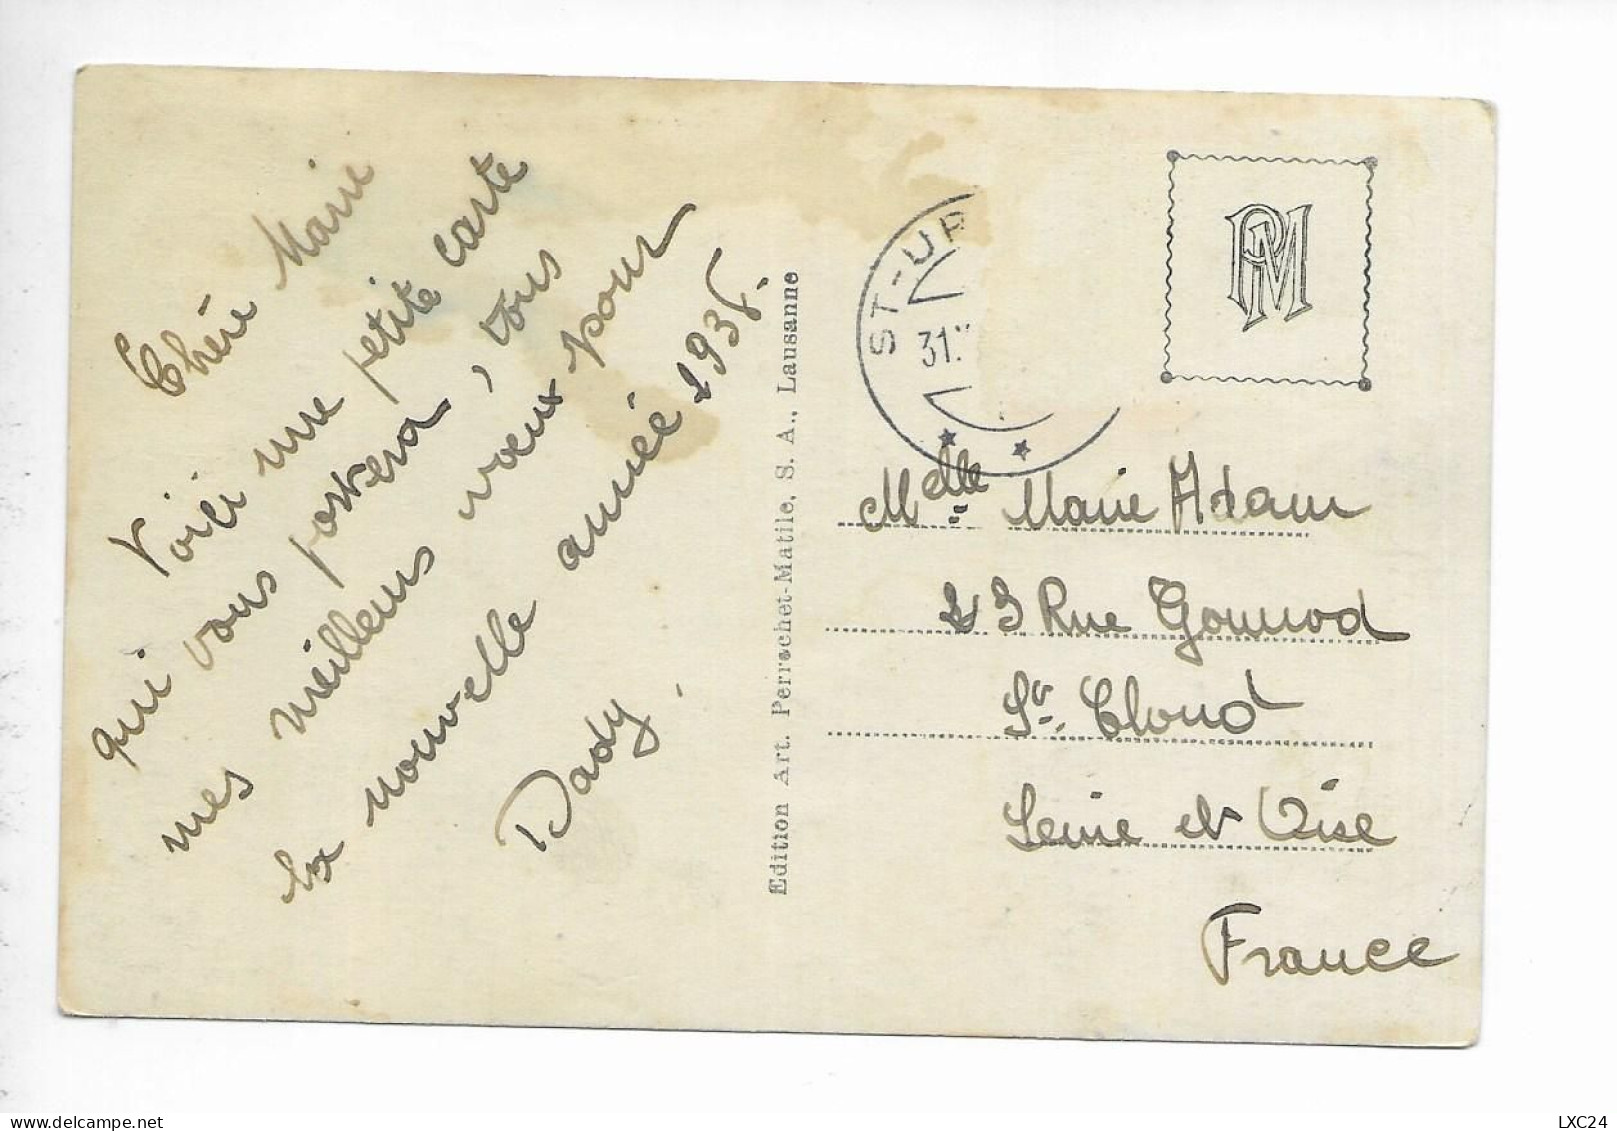 Chère Marie
Voici une petite carte
qui vous portera, tous
mes meilleurs voeux pour
la nouvelle année 1936.
Dady.
Edition Art. Perrochet-Matile, S. A., Lausanne
ST-UR
31.
PM
Melle Marie Adam
23 Rue Gounod
St. Cloud
Seine et Oise
France
LXC24